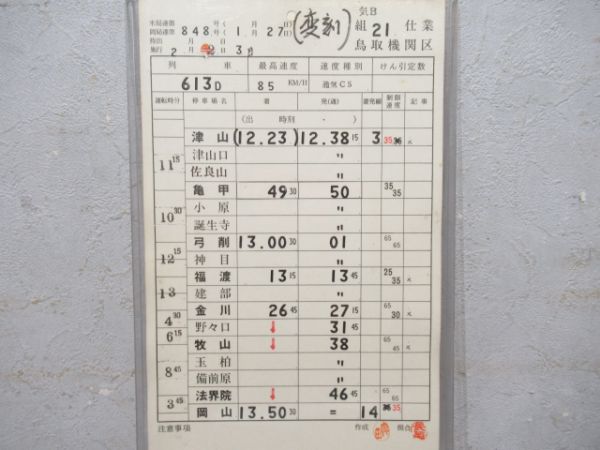 米局達第 号( 月 日)
岡局達第 848号(1月27日) (変刻)
施行 2月 3日
気B
組 21 仕業
鳥取機関区
列車 最高速度 速度種別 けん引定数
613D 85 KM/H 通気C5
運転時分 停車場名 着 発(通) 着発線 制限速度 記事
(出 時刻 ・ )
津山 (12.23) 12.38 15 3 35
津山口 〃
11 15
佐良山 〃
亀甲 49 30 50 35 35
小原 〃
10 30
誕生寺 〃
弓削 13.00 30 01 65 65
12 15
神目 〃
福渡 13 15 13 45 25 35
13
建部 〃
金川 26 45 27 15 65 30
4 30
野々口 ↓ 31 45
6 15
牧山 ↓ 38 65 45
玉柏 〃
8 45
備前原 〃
法界院 ↓ 46 45 65 65
3 45
岡山 13.50 30 = 14 35
注意事項 作成 照合